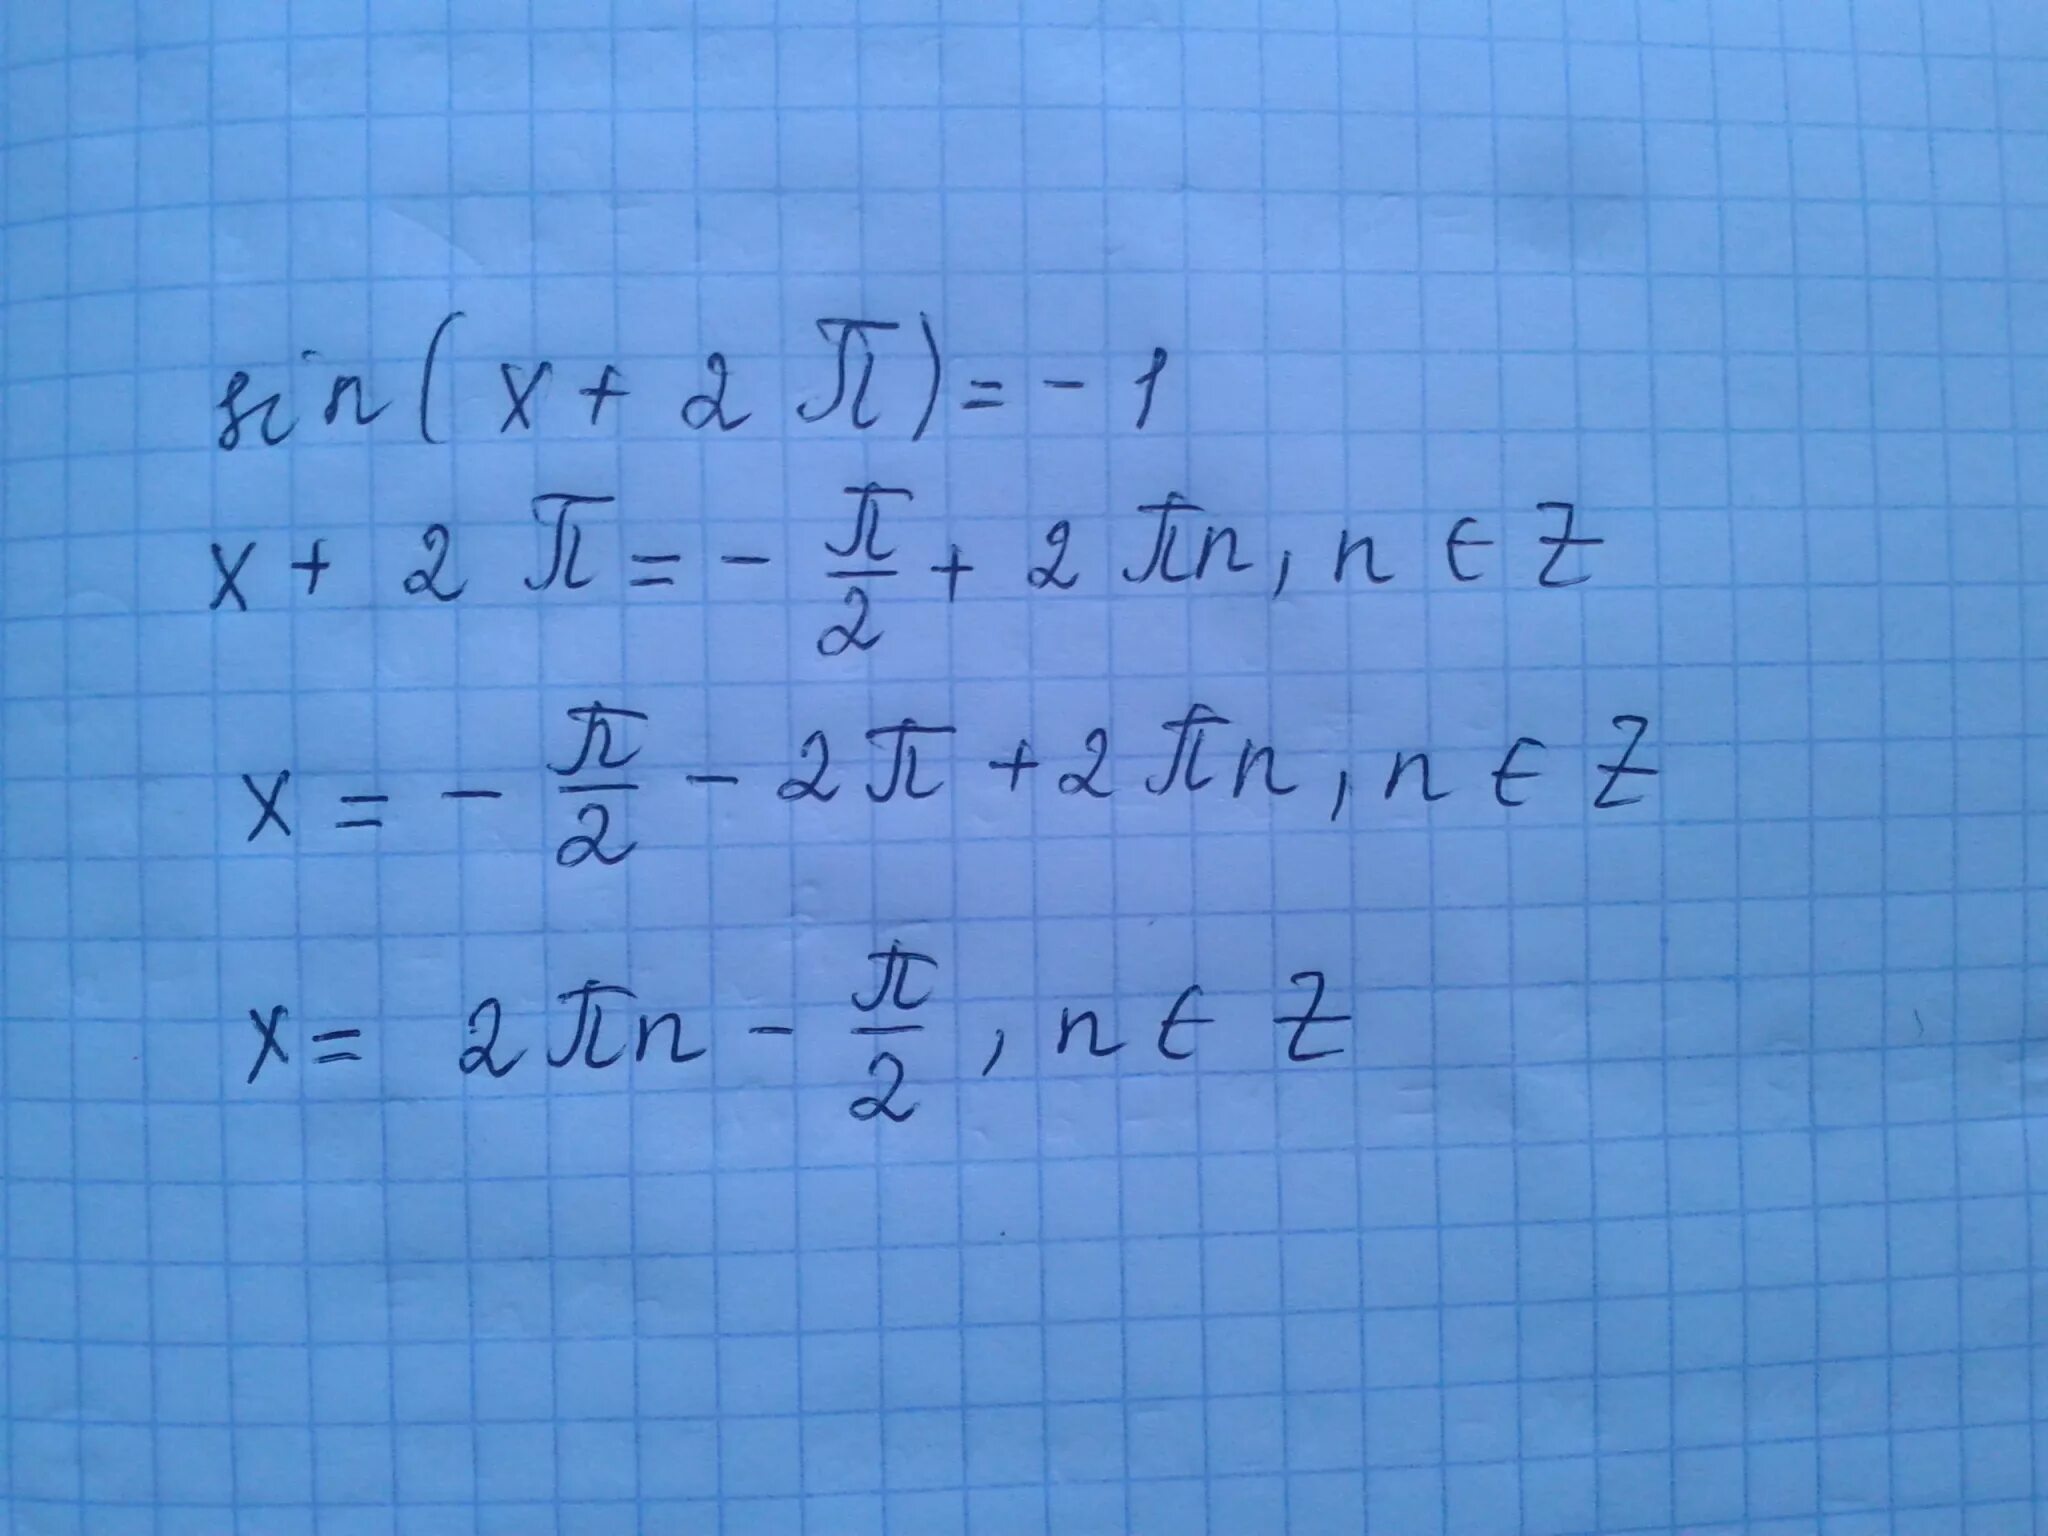 sin(x + 2π) = -1
x + 2π = - π/2 + 2πn, n ∈ Z
x = - π/2 - 2π + 2πn, n ∈ Z
x = 2πn - π/2, n ∈ Z